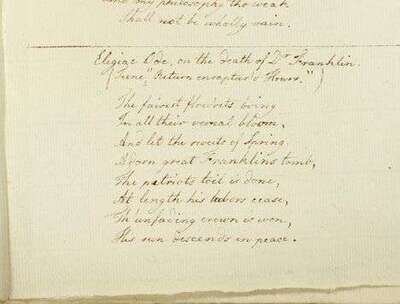 and my philosophy tho weak
Shall not be wholly vain.
Elegiac Ode, on the death of Dr Franklin.
(Tune, "Return enraptur'd Hours.")
The fairest flowrets bring
In all their vernal bloom,
And let the sweets of Spring
Adorn great Franklin's tomb,
The patriots toil is done,
At length his labors cease,
Th' unfading crown is won,
His sun descends in peace.